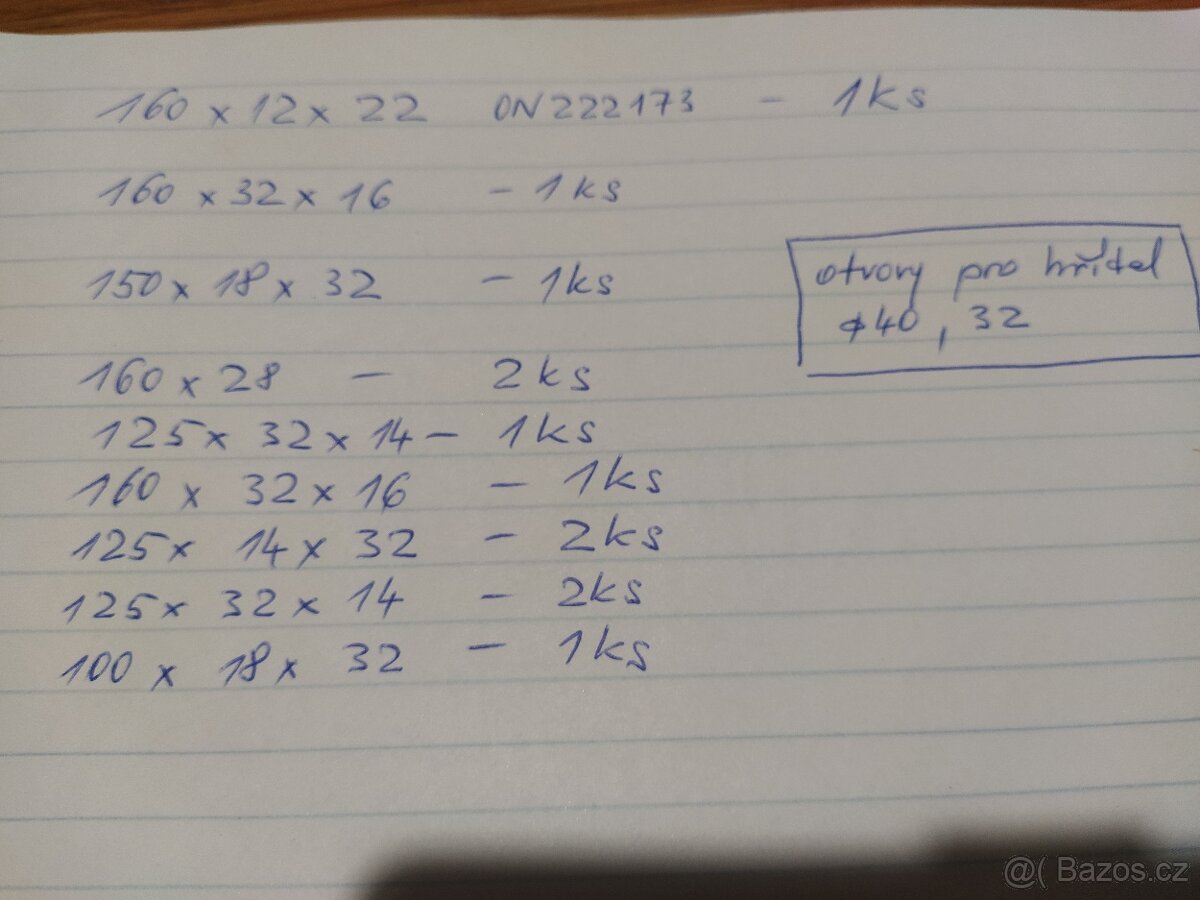 160 x 12 x 22 ON222173 - 1ks
160 x 32 x 16 - 1ks
150 x 18 x 32 - 1ks
otvory pro hřídel
ø40, 32
160 x 28 - 2ks
125 x 32 x 14 - 1ks
160 x 32 x 16 - 1ks
125 x 14 x 32 - 2ks
125 x 32 x 14 - 2ks
100 x 18 x 32 - 1ks
@( Bazos.cz